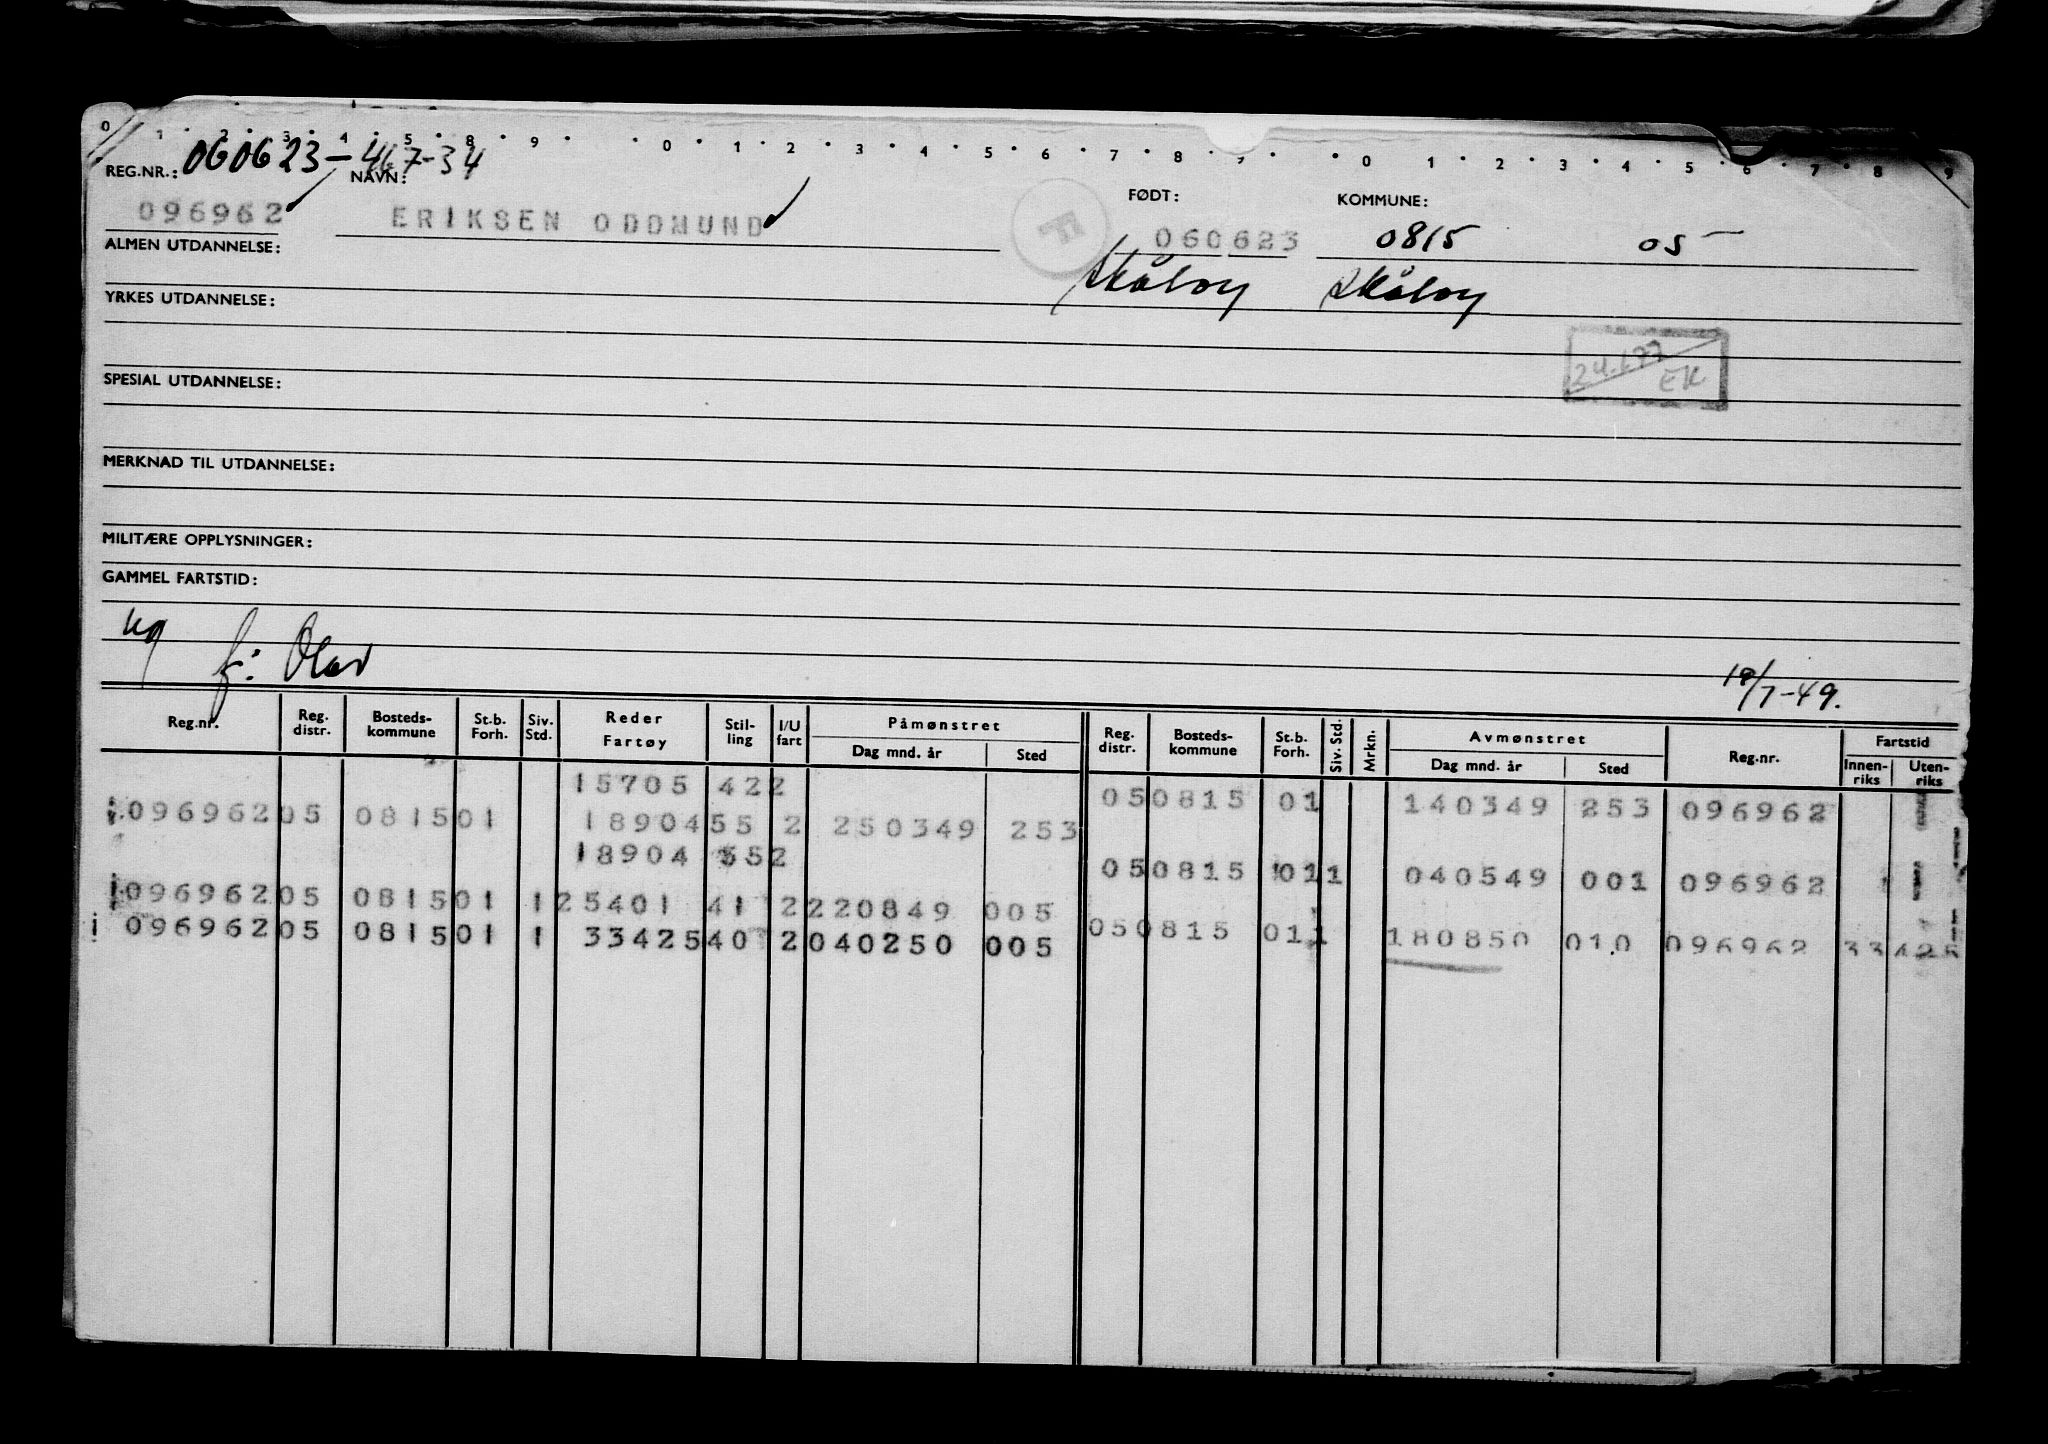 0 1 2 3 4 5 8 9 0 1 2 3 4 5 6 7 8 9 0 1 2 3 4 5 6 7 8 9
REG.NR.: 060623-467-34 NAVN: FØDT: KOMMUNE:
096962 ERIKSEN ODDMUND 060623 0815 05
ALMEN UTDANNELSE: Skåtøy Skåtøy
YRKES UTDANNELSE:
24.1.77 EK
SPESIAL UTDANNELSE:
MERKNAD TIL UTDANNELSE:
MILITÆRE OPPLYSNINGER:
GAMMEL FARTSTID:
ug f: Olav
19/7-49.
Reg.nr. Reg. distr. Bosteds-kommune St.b. Forh. Siv. Std. Reder Fartøy Stil-ling I/U fart Påmønstret Dag mnd. år Sted Reg. distr. Bosteds-kommune St.b. Forh. Siv. Std. Mrkn. Avmønstret Dag mnd. år Sted Reg.nr. Fartstid Innen-riks Uten-riks
15705 422 05 0815 01 140349 253 096962
096962 05 0815 01 18904 55 2 250349 253
18904 552 05 0815 01 1 040549 001 096962
096962 05 0815 01 1 25401 41 2 220849 005
096962 05 0815 01 1 33425 40 2 040250 005 05 0815 01 1 180850 010 096962 33425